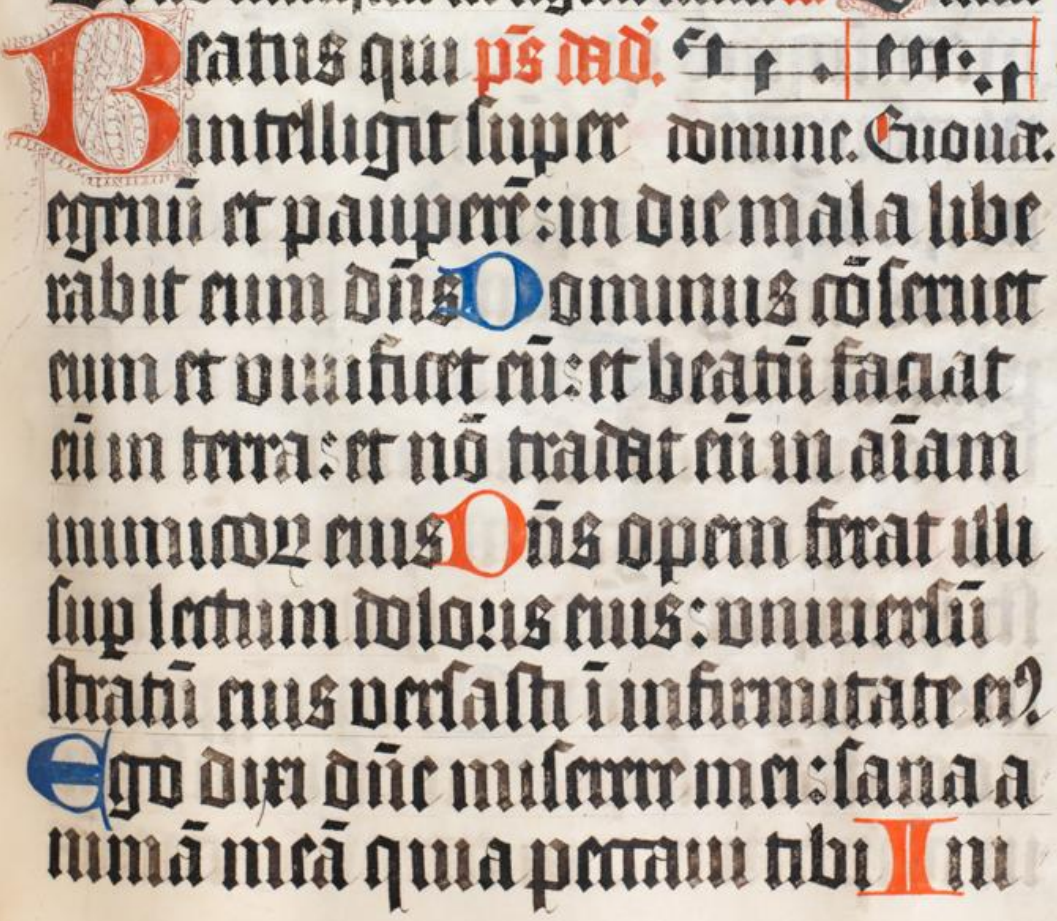 Beatus qui ps̄ dad̾.
intelligit super domine. Euouae.
egenū et pauperē: in die mala libe
rabit eum dn̄s Dominus cōseruet
eum et viuificet eū: et beatū faciat
eū in terra: et nō tradat eū in aīam
inimicoꝝ eius Dn̄s opem ferat illi
suꝑ lectum doloris eius: vniuersū
stratū eius versasti ī infirmitate eiꝰ.
Ego dixi dn̄e miserere mei: sana a
nimā meā quia peccaui tibi Ini